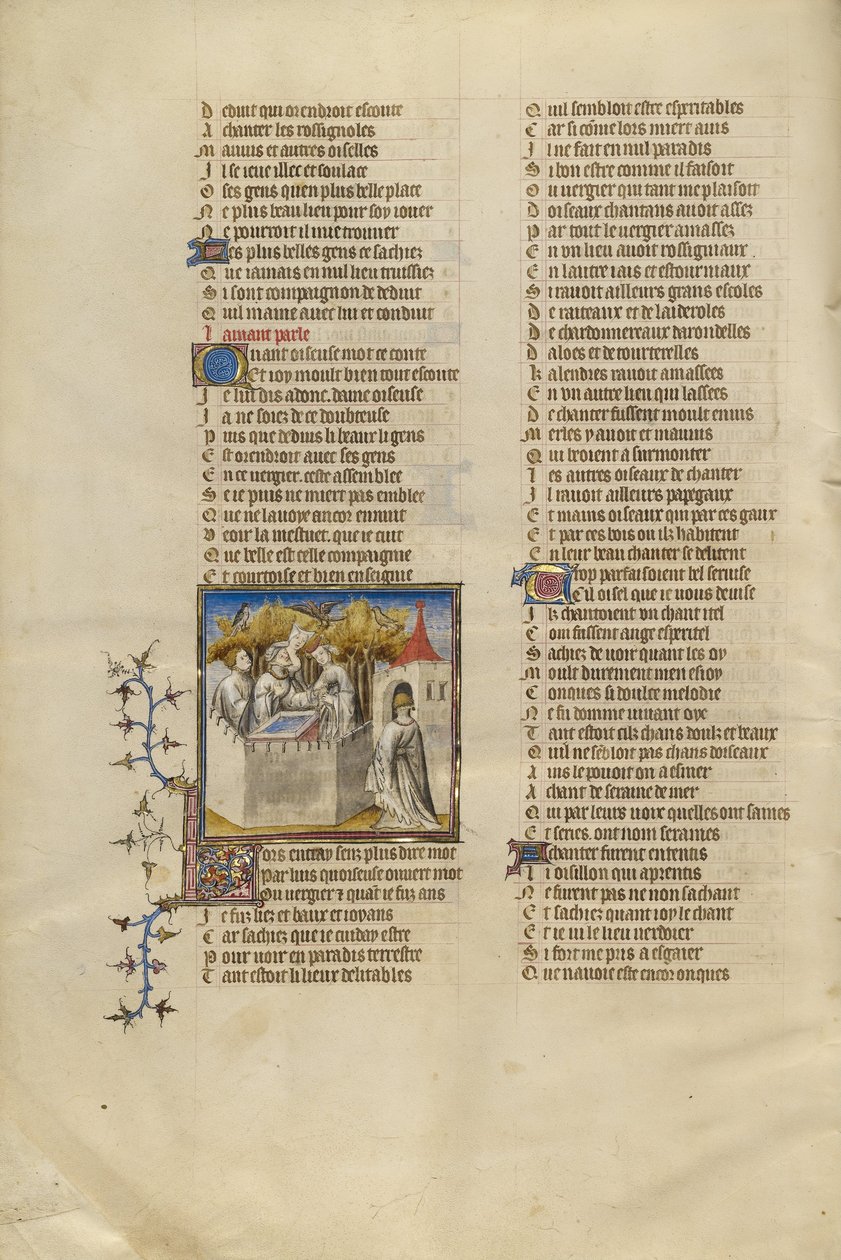 Deduit qui orendroit escoute
A chanter les rossignoles
Mauuis et autres oiselles
Il se ieue illec et soulace
O ses gens quen plus belle place
Ne plus beau lieu pour soy iouer
Ne pourroit il mie trouuer
Les plus belles gens ce sachiez
Que iamais en nul lieu truissiez
Si sont compaignon de deduit
Quil maine auec lui et conduit
Lamant parle
Quant oiseuse mot ce conte
Et ioy moult bien tout escoute
Je lui dis adonc. dame oiseuse
Ja ne soiez de ce doubteuse
Puis que deduis li beaux li gens
Est orendroit auec ses gens
En ce vergier. ceste assemblee
Se ie puis ne miert pas emblee
Que ne la voye encor ennuit
Veoir la mestuet. que ie cuit
Que belle est celle compaignie
Et courtoise et bien enseignie
Lors entray senz plus dire mot
Par luis quoiseuse ouuert mot
Ou vergier ⁊ quāt ie fuz ans
Je fuz liez et baux et ioyans
Car sachiez que ie cuiday estre
Pour voir en paradis terrestre
Tant estoit li lieux delitables
Quil sembloit estre esperitables
Car si cōme lors miert auis
Il ne fait en nul paradis
Si bon estre comme il faisoit
Ou vergier qui tant me plaisoit
Doiseaux chantans auoit assez
Par tout le vergier amassez
En vn lieu auoit rossigniaux.
En lautre iais et estourniaux
Si rauoit ailleurs grans escoles
De raiteaux et de laideroles
De chardonnereaux darondelles
Daloes et de tourterelles
Kalendres rauoit amassees
En vn autre lieu qui lassees
De chanter fussent moult enuis
Merles y auoit et mauuis
Qui beoient a surmonter
Les autres oiseaux de chanter
Il rauoit ailleurs papegaux
Et mains oiseaux qui par ces gaux
Et par ces bois ou ilz habitent
En leur beau chanter se delitent
Trop parfaisoient bel seruise
Cil oisel que ie vous deuise
Ilz chantoient vn chant itel
Com fussent ange esperitel
Sachiez de voir quant les oy
Moult durement men esioy
Conques si doulce melodie
Ne fu domme viuant oye
Tant estoit cilz chans doulz et beaux
Quil ne sēbloit pas chans doiseaux
Ains le pouoit on aesmer
A chant de seraine de mer
Qui par leurs voix quelles ont saines
Et series. ont nom seraines
A chanter furent ententis
Li oisillon qui aprentis
Ne furent pas ne non sachant
Et sachiez quant ioy le chant
Et ie vi le lieu verdoier
Si fort me pris a esgaier
Que nauoie este encor onques